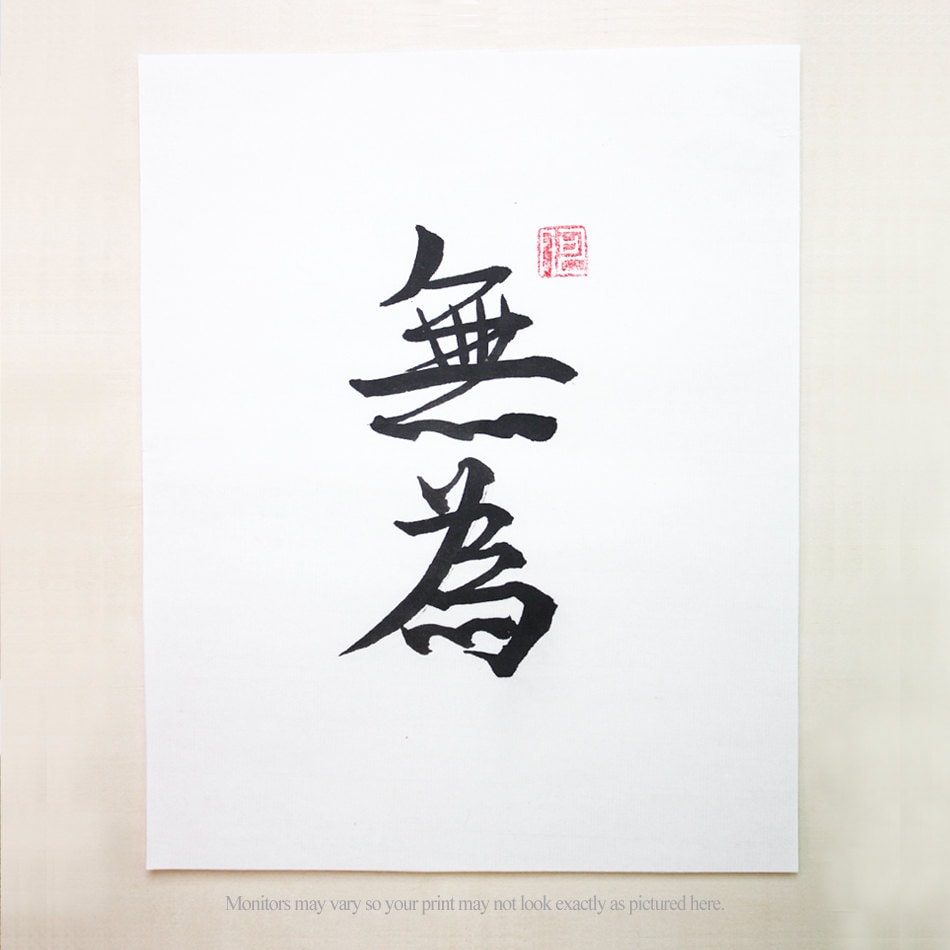 無為
Monitors may vary so your print may not look exactly as pictured here.